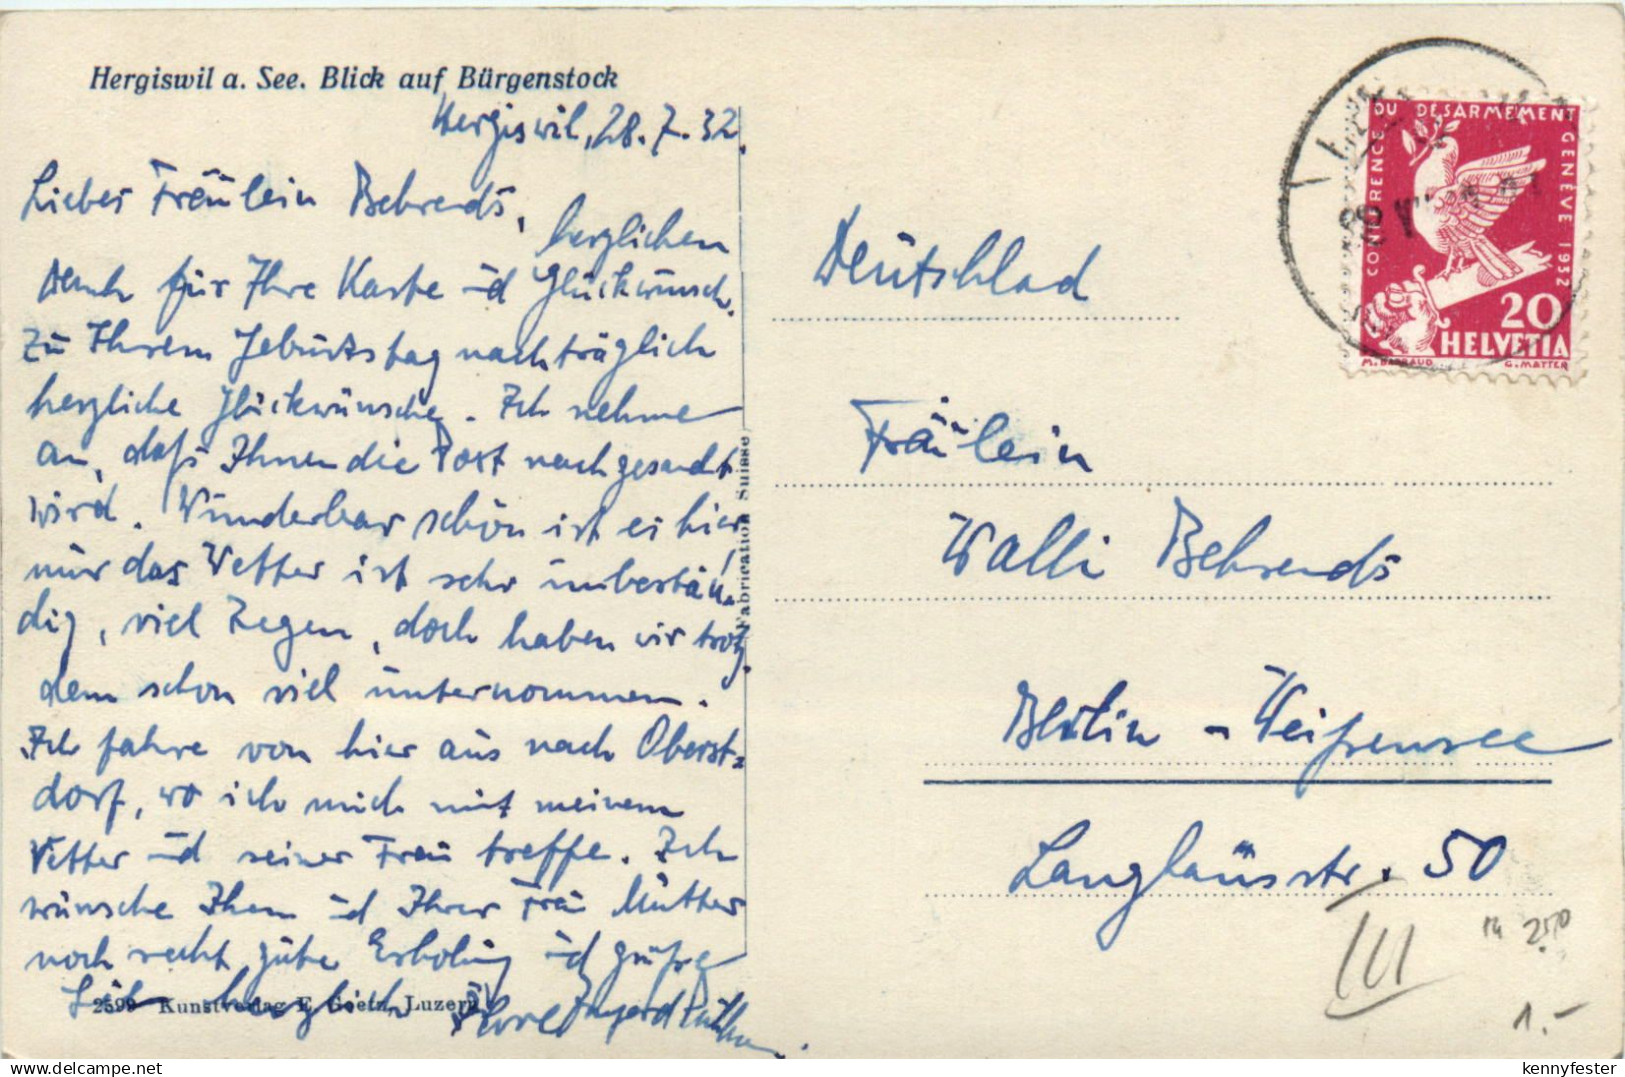 Hergiswil a. See. Blick auf Bürgenstock
Hergiswil, 28.7.32.
Liebes Fräulein Behrends,
herzlichen
Dank für Ihre Karte und Glückwünsch.
Zu Ihrem Geburtstag nachträglich
herzliche Glückwünsche. Ich nehme
an, daß Ihnen die Post nachgesandt
wird. Wunderbar schön ist es hier
nur das Wetter ist sehr unbestän-
dig, viel Regen, doch haben wir trotz-
dem schon viel unternommen.
Ich fahre von hier aus nach Oberst-
dorf, wo ich mich mit meinem
Vetter und seiner Frau treffe. Ich
wünsche Ihnen und Ihrer Frau Mutter
noch recht gute Erholung und grüße
Sie herzlich
Ihre
2599 Kunstverlag E. Goetz, Luzern
Fabrication Suisse
CONFERENCE DU DESARMEMENT GENÈVE 1932
20
HELVETIA
M. BARRAUD
G. MATTER
Deutschlad
Fräulein
Walli Behrends
Berlin - Weißensee
Langhansstr. 50
III
250
1.-
kennyfester